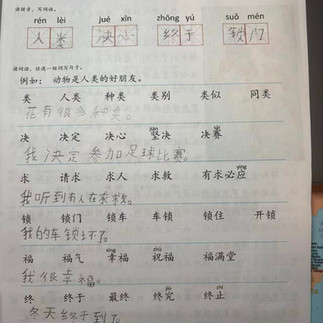 读拼音，写词语。
rén lèi jué xīn zhōng yú suǒ mén
人类 决心 终于 锁门
读词语，任选一组词写句子。
例如：动物是人类的好朋友。
类 人类 种类 类别 类似 同类
花有很多种类。
jiān sài
决 决定 决心 坚决 决赛
我决定参加足球比赛。
yìng
求 请求 求人 求救 有求必应
我听到有人在求救。
锁 锁门 锁车 车锁 锁住 开锁
我的车锁坏了。
xìng zhù
福 福气 幸福 祝福 福满堂
我很幸福。
jiū zhǐ
终 终于 最终 终究 终止
冬天终于到了。